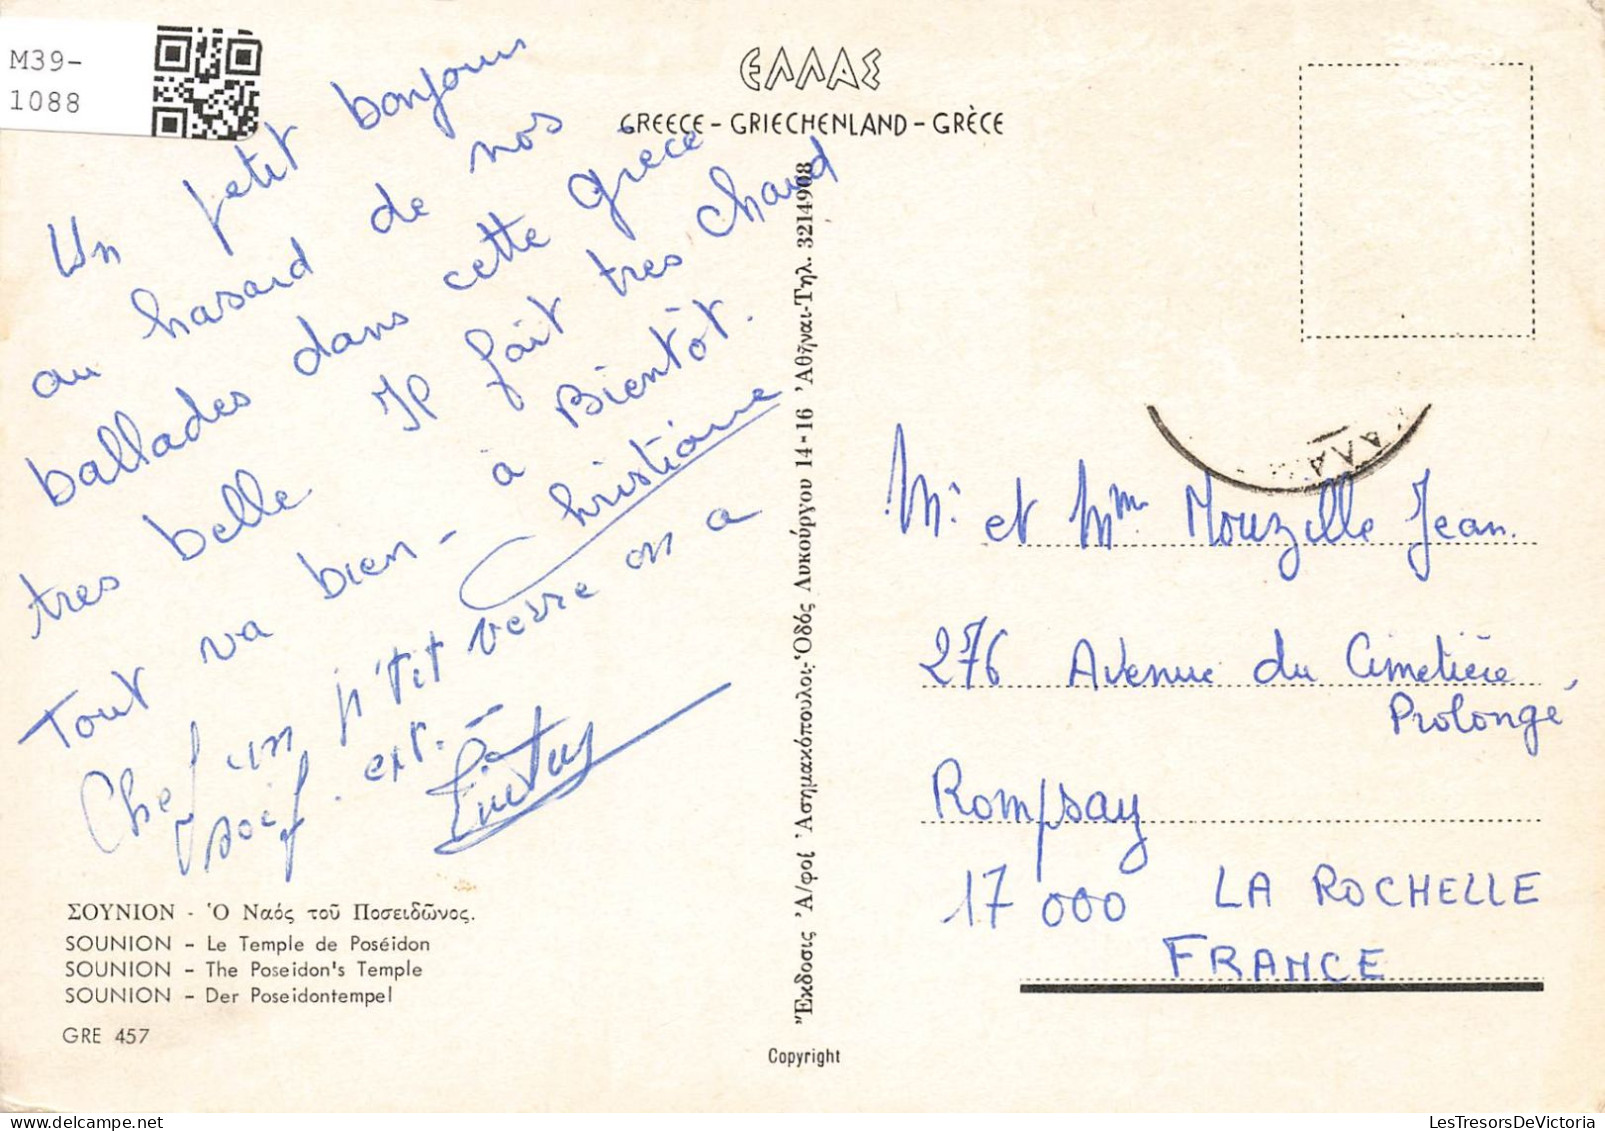 M39-
1088
ΕΛΛΑΣ
GREECE - GRIECHENLAND - GRÈCE
Un petit bonjour
au hasard de nos
ballades dans cette Grèce
tres belle Il fait tres chaud
Tout va bien - à Bientôt.
Christiane
Chef un p'tit verre on a
soif. ext. -
ΣΟΥΝΙΟΝ - Ὁ Ναός τοῦ Ποσειδῶνος.
SOUNION - Le Temple de Poséidon
SOUNION - The Poseidon's Temple
SOUNION - Der Poseidontempel
GRE 457
Ἐκδοσις Ἀ/φοί Ἀσημακόπουλοι-Ὁδός Λυκούργου 14-16 Ἀθῆναι-Τηλ. 3214908
Copyright
Mr et Mme Mouzelle Jean.
276 Avenue du Cimetière
Prolongé
Rompsay
17 000 LA ROCHELLE
FRANCE
LesTresorsDeVictoria